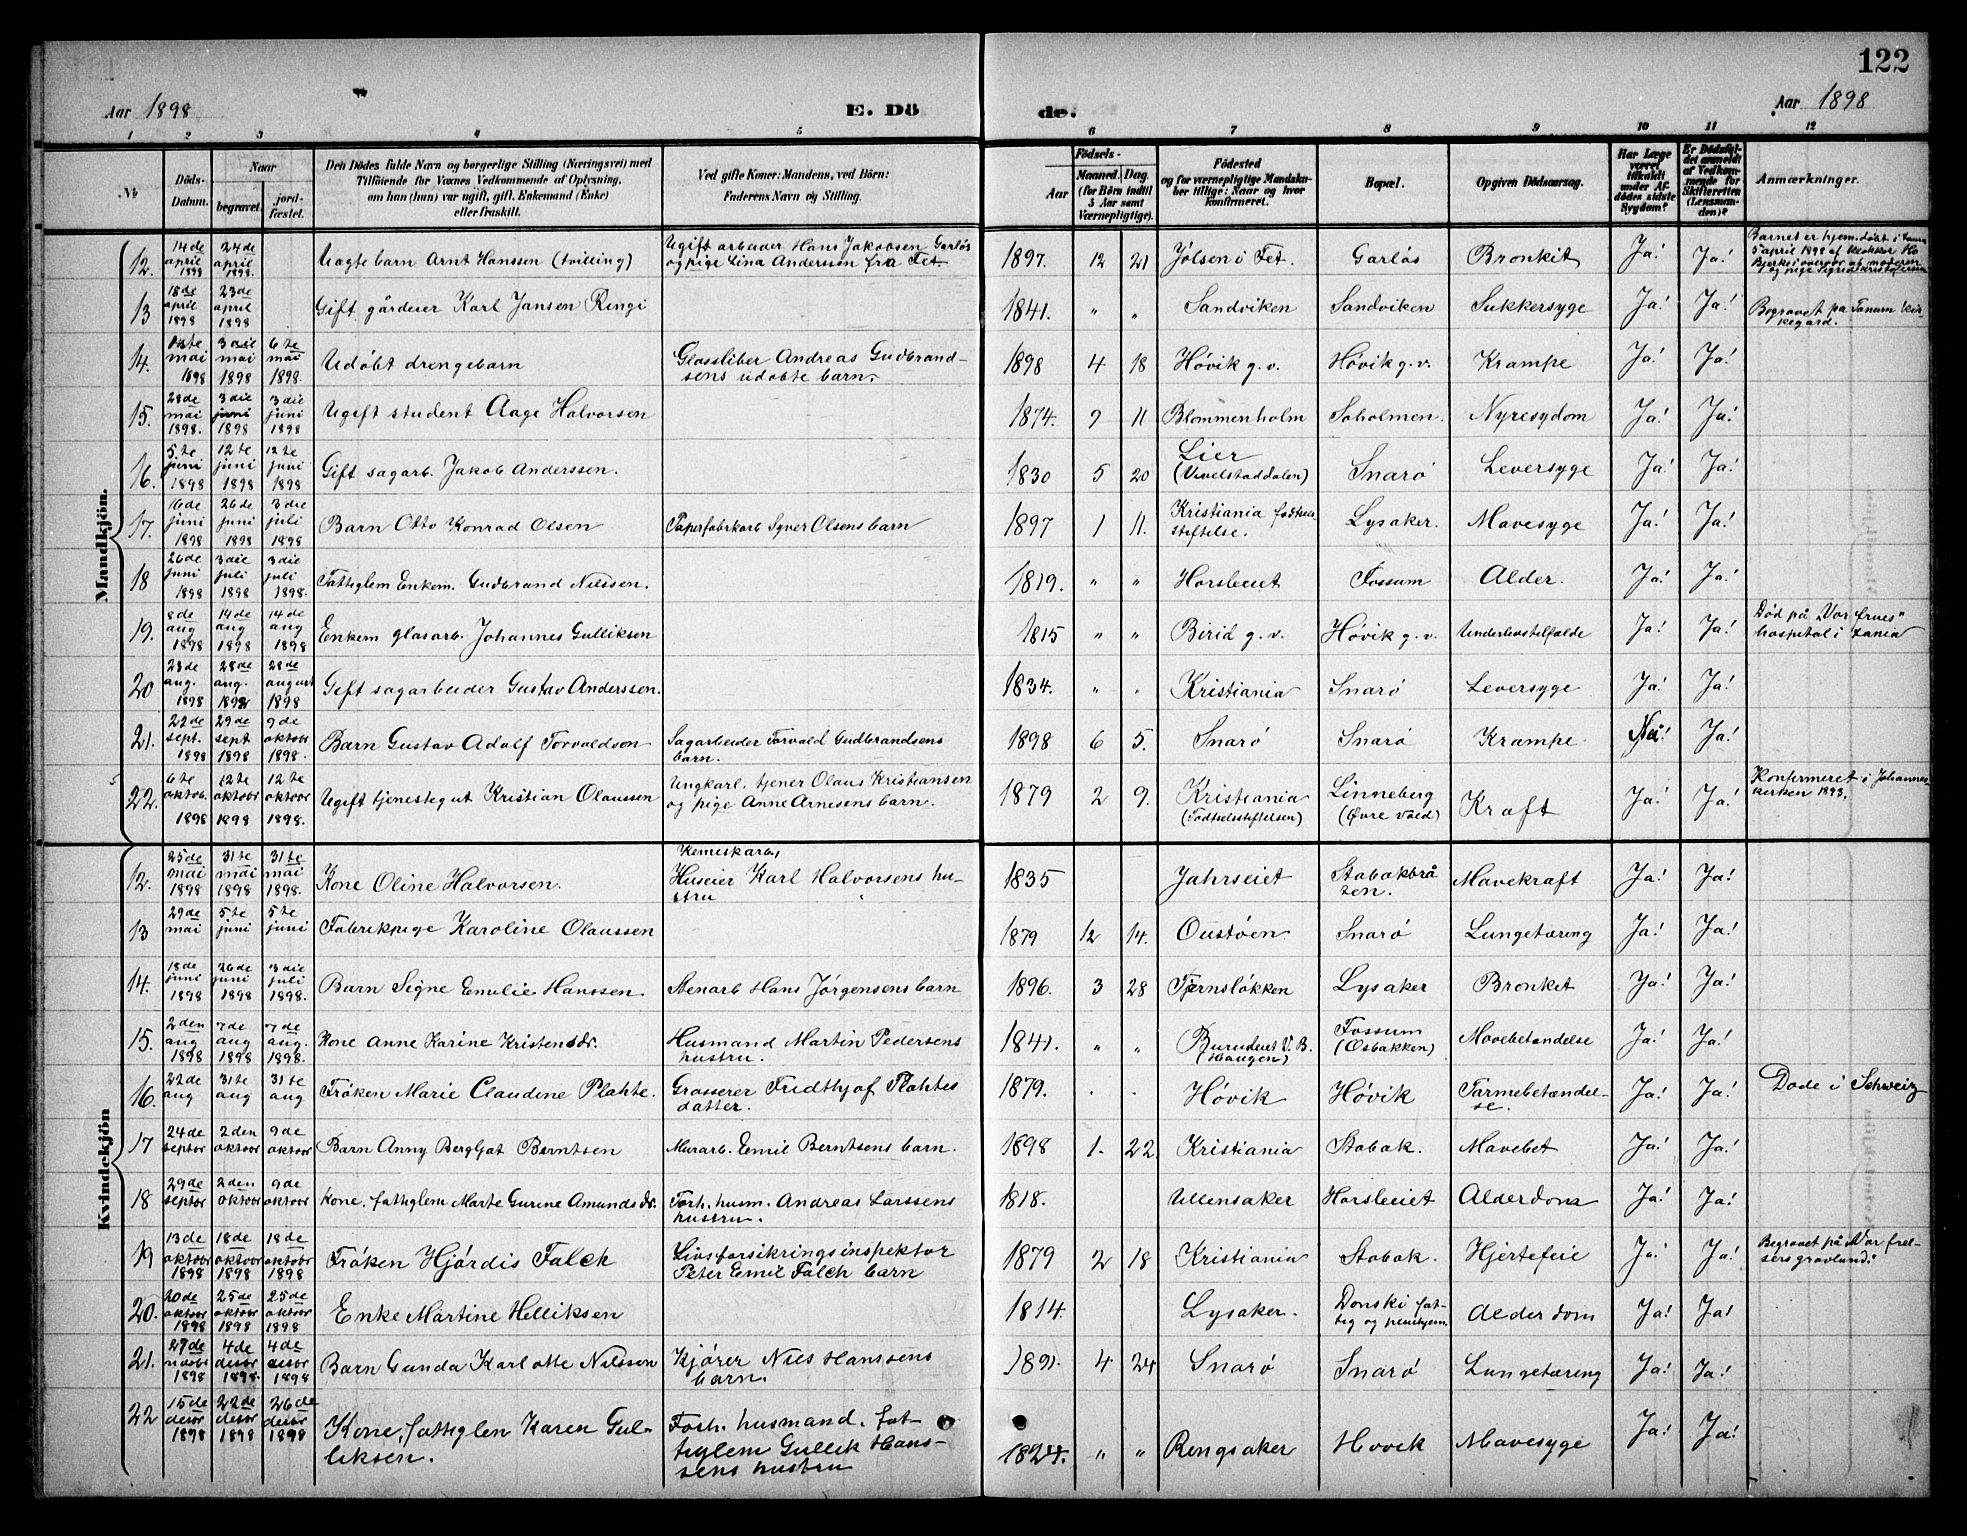 122
Aar 1898 E. Dö de. Aar 1898
1 2 3 4 5 6 7 8 9 10 11 12
№
Döds-Datum.
Naar
begravet.
jordfæstet.
Den Dödes fulde Navn og borgerlige Stilling (Næringsvei) med
Tilföiende for Voxnes Vedkommende af Oplysning,
om han (hun) var ugift, gift, Enkemand (Enke)
eller fraskilt.
Ved gifte Koner: Mandens, ved Börn:
Faderens Navn og Stilling.
Födsels-
Aar
Maaned. Dag.
(for Börn indtil
5 Aar samt
Værnepligtige).
Födested
og for værnepligtige Mandskaber tillige: Naar og hvor
konfirmeret.
Bopæl.
Opgiven Dödsaarsag.
Har Læge
været
tilkaldt
under Afdødes sidste
Sygdom?
Er Dødsfaldet anmeldt
af Vedkommende for
Skifteretten
(Lensmanden)?
Anmærkninger.
Mandkjön.
12. 14de april 1898 24de april 1898. Uægte barn Arnt Hanssen (tvilling) Ugift arbeider Hans Jakobsen Garløs og pige Lina Anderssen fra Fet. 1897. 12 21 Jølsen i Fet. Garløs Bronkit Ja! Ja! Barnet er hjem.døbt 5 april 1898 af klokker
13 18de april 1898 23de april 1898 Gift gårdeier Karl Jansen Ringi 1841. " " Sandviken Sandviken Sukkersyge Ja! Ja! Begravet på Tanum kirkegard.
14. mai 1898 3die mai 1898 6te mai 1898. Udøbt drengebarn Glassliber Andreas Gudbrandsens udøbte barn. 1898 4 18 Høvik g.v. Høvik g.v. Krampe Ja! Ja!
15. 28de mai 1898. 3die juni 1898 3die juni 1898 Ugift student Aage Halvorsen 1874. 9 11 Blommenholm Soholmen. Nyresydom Ja! Ja!
16. 5te juni 1898 12te juni 1898 12te juni 1898 Gift sagarb. Jakob Anderssen. 1830 5 20 Lier (Uvelstaddalen) Snarø Leversyge Ja! Ja!
17. 16de juni 1898 26de juni 1898 3die juli 1898 Barn Otto Konrad Olsen Papirfabrkarb Syver Olsens barn 1897 1 11. Kristiania fødselsstiftelse. Lysaker. Mavesyge Ja! Ja!
18 26de juni 1898 3die juli 1898 3die juli 1898. Fattiglem Enkem. Gudbrand Nilssen. 1819. " " Horsleiet Fossum Alder. Ja! Ja!
19. 8de aug 1898 14de aug 1898 14de aug 1898 Enkem glasarb. Johannes Gulliksen 1815 " " Birid g.v. Høvik g.v. Underlivstilfælde Ja! Ja! Død på „Vor frues" hospital i Xania
20 23de aug. 1898 28de aug. 1898 28de august 1898 Gift sagarbeider Gustav Anderssen. 1834. " " Kristiania Snarø Leversyge Ja! Ja!
21. 22de sept. 1898 29de sept 1898 9de oktobr 1898. Barn Gustav Adolf Torvaldson Sagarbeider Torvald Gudbrandsens barn. 1898 6 5. Snarø Snarø Krampe Nei! Ja!
22. 6te oktob. 1898 12te oktobr 1898 12te oktobr 1898. Ugift tjenestegut Kristian Olaussen Ungkarl, tjener Olaus Kristiansen og pige Anne Arnesens barn. 1879 2 9. Kristiania (Fødselsstiftelsen) Linneberg (Øvre Vold) Kraft Ja! Ja! Konfirmeret i Johanneskirken 1893.
Kvindekjön
12. 25de mai 1898 31te mai 1898 31te mai 1898. Kone Oline Halvorsen. Kemiskarb, Huseier Karl Halvorsens hustru 1835 Jahrseiet Stabakbråten. Mavekraft Ja! Ja!
13 29de mai 5te juni 5te juni Fabrikpige Karoline Olaussen 1879 12 14. Oustøen. Snarø Lungetæring Ja! Ja!
14. 18de juni 1898 26de juni 1898 3die juli 1898. Barn Signe Emilie Hanssen. Stenarb Hans Jørgensens barn 1896. 3 28 Tjernsløkken Lysaker Bronkit Ja! Ja!
15. 2den aug 1898 7de aug 1898 7de aug. 1898. Kone Anne Karine Kristensdr. Husmand Martin Pedersens hustru. 1841. " " Burudeiet V.B. (Haugen) Fossum (Osbakken) Mavebetændelse Ja! Ja!
16. 22de aug 31te aug 31te aug Frøken Marie Claudine Plahte. Grosserer Fridthjof Plahtes datter. 1879. . . Høvik Høvik Tarmebetændelse. Ja! Ja! Døde i Schweiz
17 24de septbr 2den oktobr 9de oktobr Barn Anny Bergljot Berntsen Murarb. Emil Berntsens barn. 1898 1. 22 Kristiania Stabak. Mavebet Ja! Ja!
18 29de septbr 2den oktobr 9de oktobr Kone, fattiglem Marte Gurine Amundsdr. Forh. husm. Andreas Larssens hustru. 1818. Ullensaker Horsleiet Alderdom Ja! Ja!
19 13de oktobr 1898 18de oktobr 1898 18de oktobr 1898 Frøken Hjørdis Falck Livsforsikringsinspektør Peter Emil Falck barn 1879 2 18 Kristiania Stabak. Hjertefeil Ja! Ja! Begravet på Vor frelsers gravlund.
20. 20de oktobr 1898 25de oktobr 1898 25de oktobr 1898 Enke Martine Helliksen 1814. Lysaker. Donski fattig og pleiehjem. Alderdom Ja! Ja!
21. 27de novbr 1898 4de decbr 1898. 4de decbr 1898 Barn Gunda Karlotte Nilssen Kjører Nils Hanssens barn. 1891. 4 24 Snarø Snarø Lungetæring Ja! Ja!
22 15de decbr 1898 22de decbr 1898 26de decbr 1898 Kone, fattiglem Karen Gulliksen. Forh. husmand, fattiglem Gullik Hanssens hustru 1824. " " Ringsaker Høvik Mavesyge Ja! Ja!